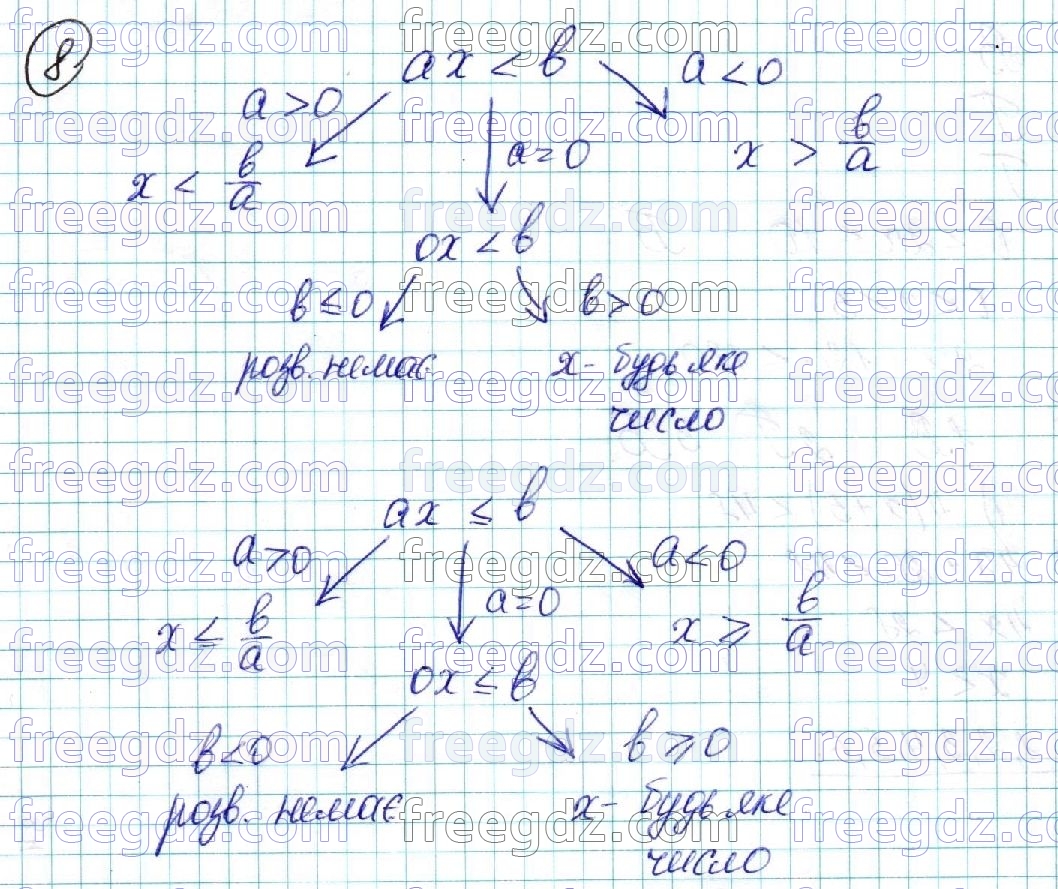 8.
ax < b a < 0
a > 0
a = 0 x > b/a
x < b/a
0x < b
b ≤ 0 b > 0
розв. немає x - будь яке
число
ax ≤ b
a > 0 a < 0
a = 0
x ≤ b/a x ≥ b/a
0x ≤ b
b < 0 b ≥ 0
розв. немає x - будь яке
число
freegdz.com